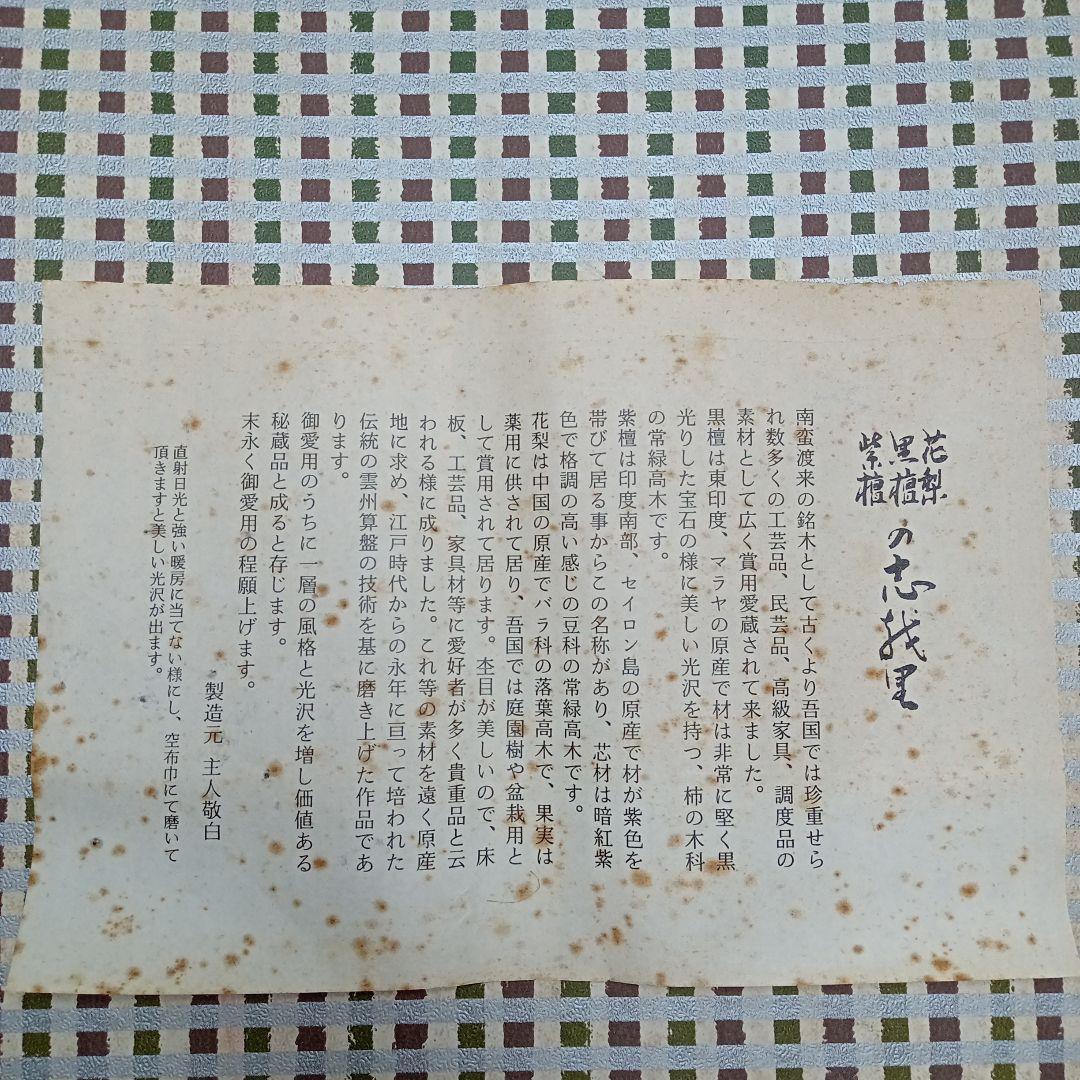 花梨
黒檀
紫檀
の志越里
南蛮渡来の銘木として古くより吾国では珍重せら
れ数多くの工芸品、民芸品、高級家具、調度品の
素材として広く賞用愛蔵されて来ました。
黒檀は東印度、マラヤの原産で材は非常に堅く黒
光りした宝石の様に美しい光沢を持つ、柿の木科
の常緑高木です。
紫檀は印度南部、セイロン島の原産で材が紫色を
帯びて居る事からこの名称があり、芯材は暗紅紫
色で格調の高い感じの豆科の常緑高木です。
花梨は中国の原産でバラ科の落葉高木で、果実は
薬用に供されて居り、吾国では庭園樹や盆栽用と
して賞用されて居ります。杢目が美しいので、床
板、工芸品、家具材等に愛好者が多く貴重品と云
われる様に成りました。これ等の素材を遠く原産
地に求め、江戸時代からの永年に亘って培われた
伝統の雲州算盤の技術を基に磨き上げた作品であ
ります。
御愛用のうちに一層の風格と光沢を増し価値ある
秘蔵品と成ると存じます。
末永く御愛用の程願上げます。
製造元 主人敬白
直射日光と強い暖房に当てない様にし、空布巾にて磨いて
頂きますと美しい光沢が出ます。